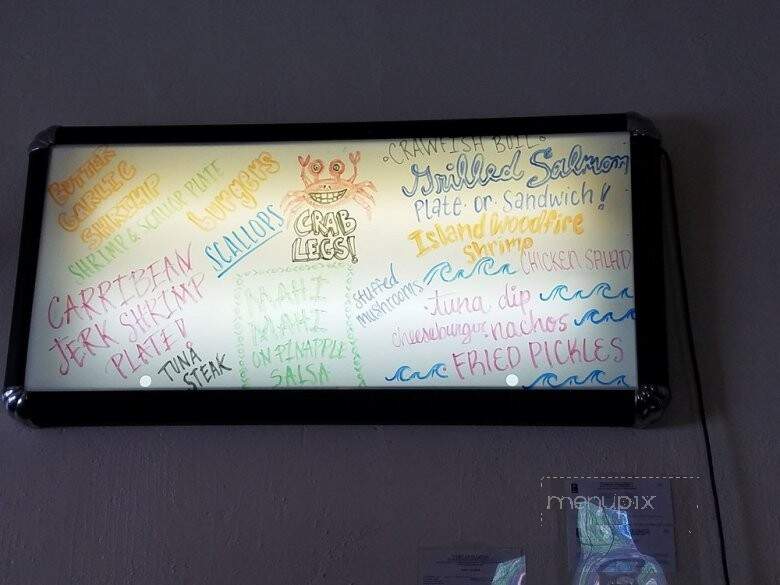 BUTTER
GARLIC
SHRIMP
SHRIMP & SCALLOP PLATE
burgers
SCALLOPS
CRAB
LEGS!
CARRIBEAN
JERK SHRIMP
PLATE!
TUNA
STEAK
MAHI
MAHI
ON PINAPPLE
SALSA
stuffed
mushrooms
•CRAWFISH BOIL•
Grilled Salmon
Plate or Sandwich!
Island Woodfire
Shrimp
CHICKEN SALAD
•tuna dip
cheeseburger nachos
FRIED PICKLES
menupix